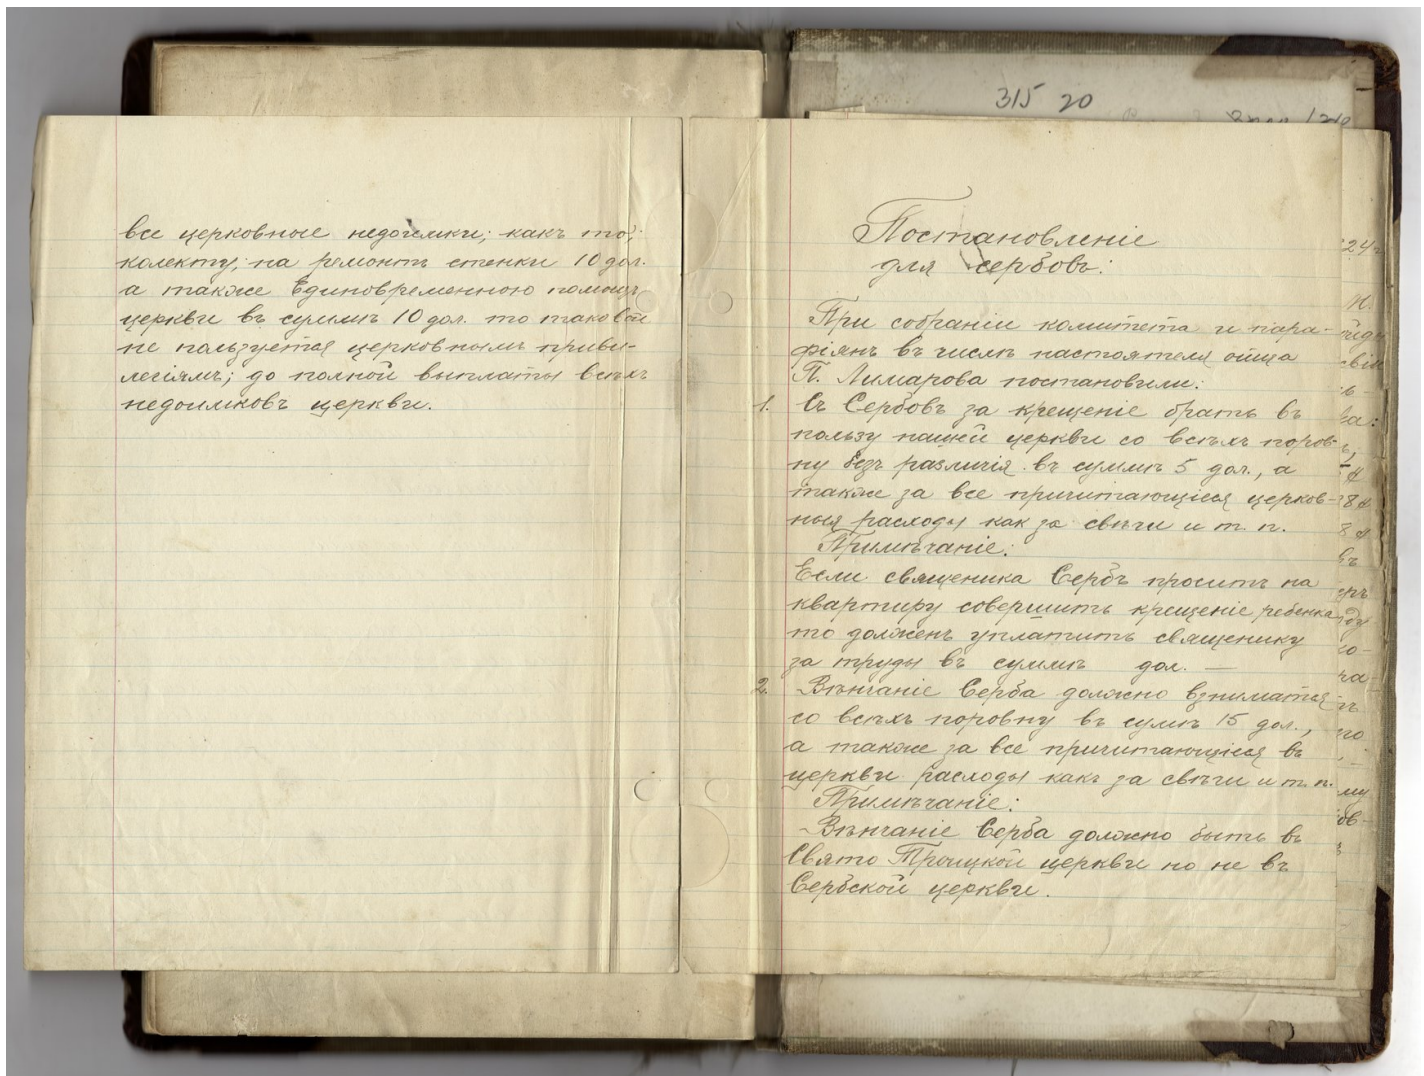 все церковные недоимки; какъ то;
колекту; на ремонтъ стенки 10 дол.
а также Единовременною помощъ
церкви въ суммѣ 10 дол. то таковой
не пользуется церковнымъ приви-
легіямъ; до полной выплаты всѣхъ
недоимковъ церкви.
315 20
Постановленіе
для сербовъ:
При собраніи комитета и пара-
фіянъ въ числѣ настоятеля отца
П. Лимарова постановили:
1. Съ Сербовъ за крещеніе брать въ
пользу нашей церкви со всѣхъ поров-
ну безъ различія въ суммѣ 5 дол., а
также за все причитающіеся церков-
ныя расходы как за свѣчи и т. п.
Примѣчаніе:
Если священика Сербъ проситъ на
квартиру совершить крещеніе ребенка
то долженъ уплатить священику
за труды въ суммѣ дол. —
2. Вѣнчаніе Серба должно взниматся
со всѣхъ поровну въ сумѣ 15 дол.,
а также за все причитающіеся въ
церкви расходы какъ за свѣчи и т. п.
Примѣчаніе:
Вѣнчаніе Серба должно быть въ
Свято Троицкой церкви но не въ
Сербской церкви.